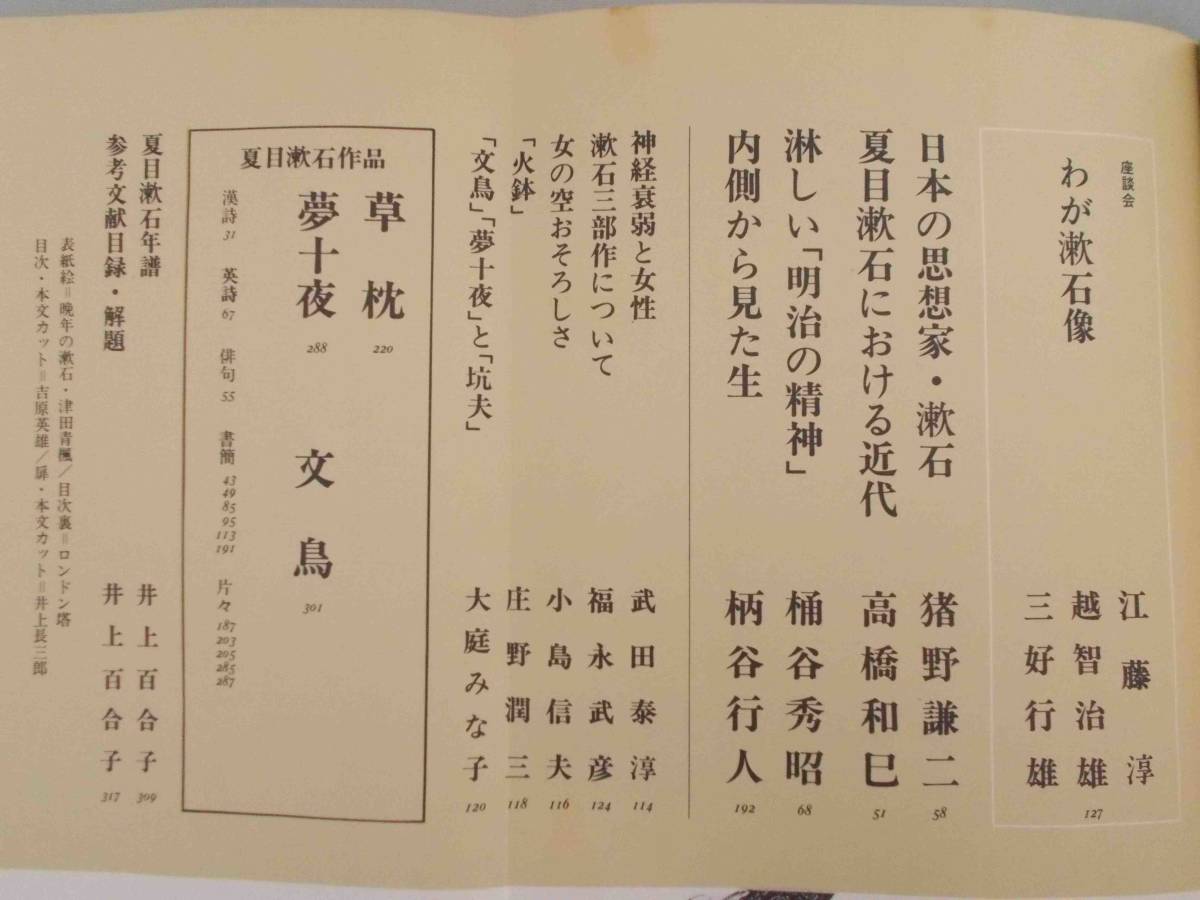 座談会
わが漱石像
江藤 淳
越智治雄
三好行雄
127
日本の思想家・漱石 猪野謙二 58
夏目漱石における近代 高橋和巳 51
淋しい「明治の精神」 桶谷秀昭 68
内側から見た生 柄谷行人 192
神経衰弱と女性 武田泰淳 114
漱石三部作について 福永武彦 124
女の空おそろしさ 小島信夫 116
「火鉢」 庄野潤三 118
「文鳥」「夢十夜」と「坑夫」 大庭みな子 120
夏目漱石作品
草枕 220
夢十夜 288 文鳥 301
漢詩 31 英詩 67 俳句 55 書簡 43 49 85 95 113 191 片々 187 203 205 285 287
夏目漱石年譜 井上百合子 309
参考文献目録・解題 井上百合子 317
表紙絵=晩年の漱石・津田青楓/目次裏=ロンドン塔
目次・本文カット=吉原英雄/扉・本文カット=井上長三郎